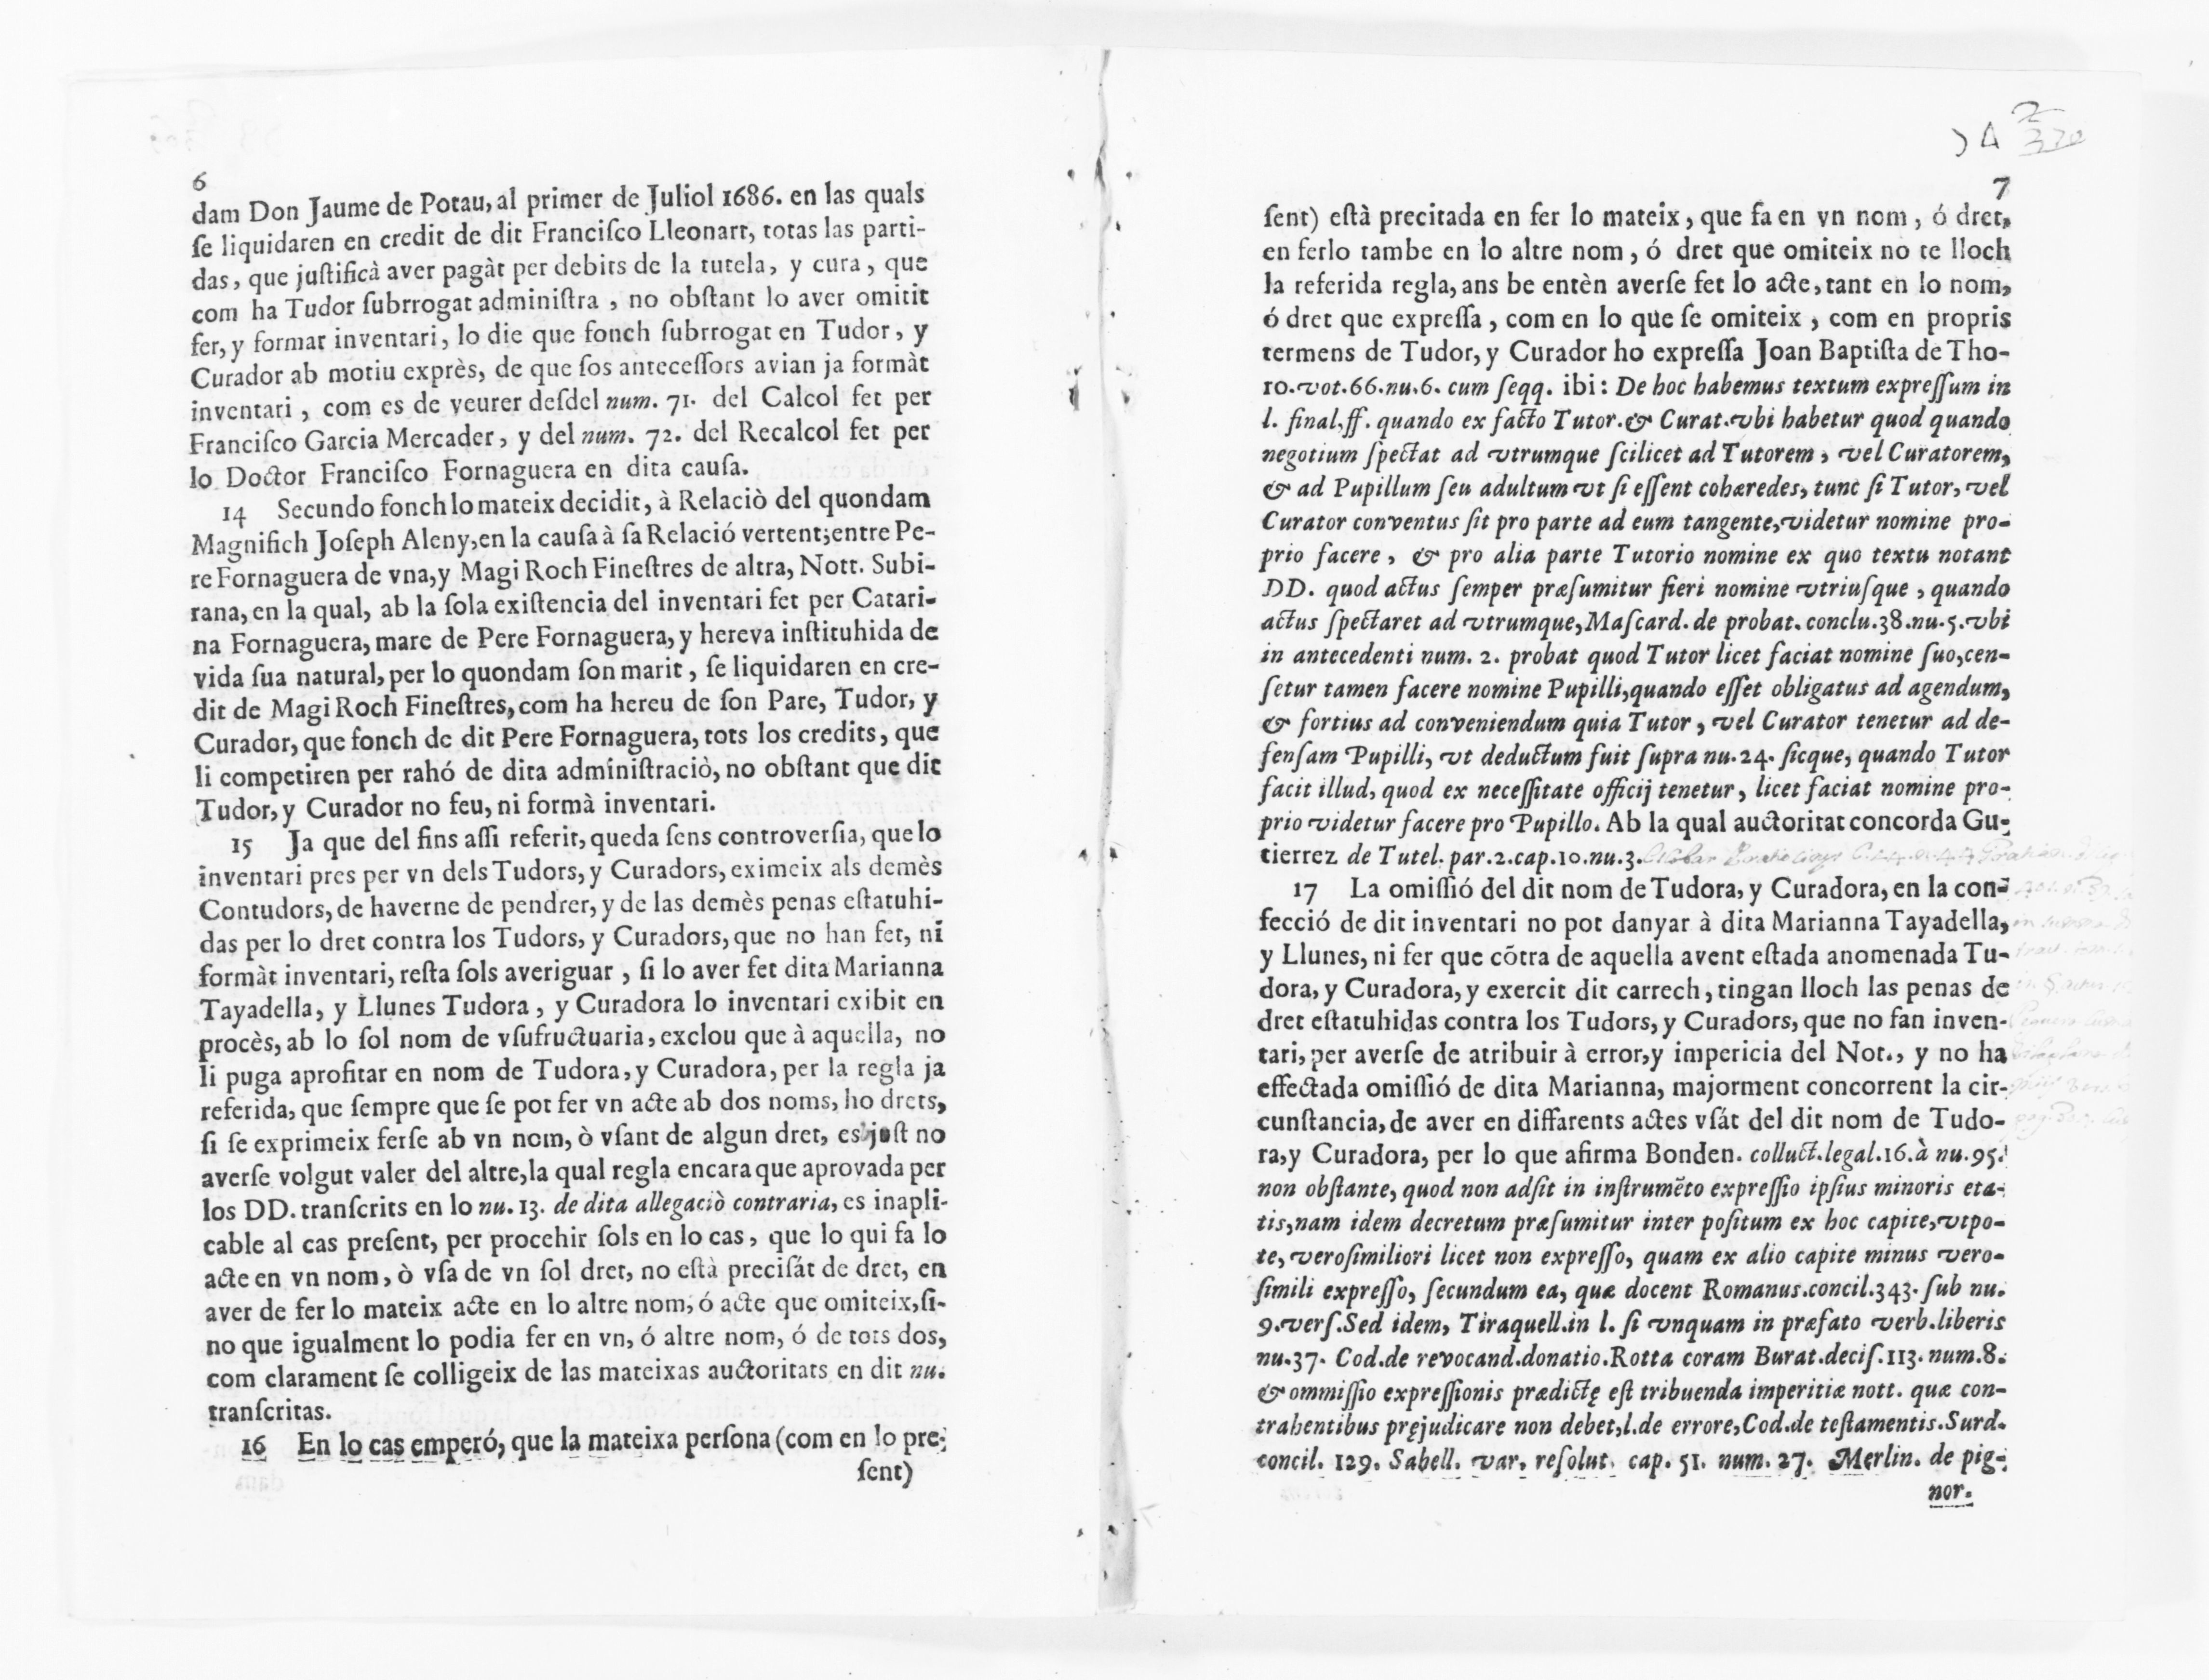 6
dam Don Jaume de Potau, al primer de Juliol 1686. en las quals
ſe liquidaren en credit de dit Franciſco Lleonart, totas las parti-
das, que juſtificà aver pagàt per debits de la tutela, y cura, que
com ha Tudor ſubrrogat adminiſtra, no obſtant lo aver omitit
fer, y formar inventari, lo die que fonch ſubrrogat en Tudor, y
Curador ab motiu exprès, de que ſos anteceſſors avian ja formàt
inventari, com es de veurer deſdel num. 71. del Calcol fet per
Franciſco Garcia Mercader, y del num. 72. del Recalcol fet per
lo Doctor Franciſco Fornaguera en dita cauſa.
14 Secundo fonch lo mateix decidit, à Relaciò del quondam
Magnifich Joſeph Aleny, en la cauſa à ſa Relació vertent; entre Pe-
re Fornaguera de vna, y Magi Roch Fineſtres de altra, Nott. Subi-
rana, en la qual, ab la ſola exiſtencia del inventari fet per Catari-
na Fornaguera, mare de Pere Fornaguera, y hereva inſtituhida de
vida ſua natural, per lo quondam ſon marit, ſe liquidaren en cre-
dit de Magi Roch Fineſtres, com ha hereu de ſon Pare, Tudor, y
Curador, que fonch de dit Pere Fornaguera, tots los credits, que
li competiren per rahó de dita adminiſtraciò, no obſtant que dit
Tudor, y Curador no feu, ni formà inventari.
15 Ja que del fins aſſi referit, queda ſens controverſia, que lo
inventari pres per vn dels Tudors, y Curadors, eximeix als demès
Contudors, de haverne de pendrer, y de las demès penas eſtatuhi-
das per lo dret contra los Tudors, y Curadors, que no han fet, ni
formàt inventari, reſta ſols averiguar, ſi lo aver fet dita Marianna
Tayadella, y Llunes Tudora, y Curadora lo inventari exibit en
procès, ab lo ſol nom de vſufructuaria, exclou que à aquella, no
li puga aprofitar en nom de Tudora, y Curadora, per la regla ja
referida, que ſempre que ſe pot fer vn acte ab dos noms, ho drets,
ſi ſe exprimeix ferſe ab vn nom, ò vſant de algun dret, es viſt no
averſe volgut valer del altre, la qual regla encara que aprovada per
los DD. tranſcrits en lo nu. 13. de dita allegaciò contraria, es inapli-
cable al cas preſent, per procehir ſols en lo cas, que lo qui fa lo
acte en vn nom, ò vſa de vn ſol dret, no eſtà preciſát de dret, en
aver de fer lo mateix acte en lo altre nom, ó acte que omiteix, ſi-
no que igualment lo podia fer en vn, ó altre nom, ó de tots dos,
com clarament ſe colligeix de las mateixas auctoritats en dit nu.
tranſcritas.
16 En lo cas emperó, que la mateixa perſona (com en lo pre-
ſent)
7
ſent) eſtà precitada en fer lo mateix, que fa en vn nom, ó dret,
en ferlo tambe en lo altre nom, ó dret que omiteix no te lloch
la referida regla, ans be entèn averſe fet lo acte, tant en lo nom,
ó dret que expreſſa, com en lo que ſe omiteix, com en propris
termens de Tudor, y Curador ho expreſſa Joan Baptiſta de Tho-
ro. vot. 66. nu. 6. cum ſeqq. ibi: De hoc habemus textum expreſſum in
l. final. ff. quando ex facto Tutor. & Curat. vbi habetur quod quando
negotium ſpectat ad vtrumque ſcilicet ad Tutorem, vel Curatorem,
& ad Pupillum ſeu adultum vt ſi eſſent cohæredes, tunc ſi Tutor, vel
Curator conventus ſit pro parte ad eum tangente, videtur nomine pro-
prio facere, & pro alia parte Tutorio nomine ex quo textu notant
DD. quod actus ſemper præſumitur fieri nomine vtriuſque, quando
actus ſpectaret ad vtrumque, Maſcard. de probat. conclu. 38. nu. 5. vbi
in antecedenti num. 2. probat quod Tutor licet faciat nomine ſuo, cen-
ſetur tamen facere nomine Pupilli, quando eſſet obligatus ad agendum,
& fortius ad conveniendum quia Tutor, vel Curator tenetur ad de-
fenſam Pupilli, vt deductum fuit ſupra nu. 24. ſicque, quando Tutor
facit illud, quod ex neceſſitate officij tenetur, licet faciat nomine pro-
prio videtur facere pro Pupillo. Ab la qual auctoritat concorda Gu-
tierrez de Tutel. par. 2. cap. 10. nu. 3.
17 La omiſſió del dit nom de Tudora, y Curadora, en la con-
fecció de dit inventari no pot danyar à dita Marianna Tayadella,
y Llunes, ni fer que cõtra de aquella avent eſtada anomenada Tu-
dora, y Curadora, y exercit dit carrech, tingan lloch las penas de
dret eſtatuhidas contra los Tudors, y Curadors, que no fan inven-
tari, per averſe de atribuir à error, y impericia del Not., y no ha
effectada omiſſió de dita Marianna, majorment concorrent la cir-
cunſtancia, de aver en diffarents actes vſát del dit nom de Tudo-
ra, y Curadora, per lo que afirma Bonden. colluct. legal. 16. à nu. 95.
non obſtante, quod non adſit in inſtrumẽto expreſſio ipſius minoris eta-
tis, nam idem decretum præſumitur inter poſitum ex hoc capite, vtpo-
te, veroſimiliori licet non expreſſo, quam ex alio capite minus vero-
ſimili expreſſo, ſecundum ea, quæ docent Romanus. concil. 343. ſub nu.
9. verſ. Sed idem, Tiraquell. in l. ſi vnquam in præfato verb. liberis
nu. 37. Cod. de revocand. donatio. Rotta coram Burat. deciſ. 113. num. 8.
& ommiſſio expreſſionis prædictę eſt tribuenda imperitiæ nott. quæ con-
trahentibus pręjudicare non debet, l. de errore, Cod. de teſtamentis. Surd.
concil. 129. Sabell. var. reſolut. cap. 51. num. 27. Merlin. de pig-
nor.